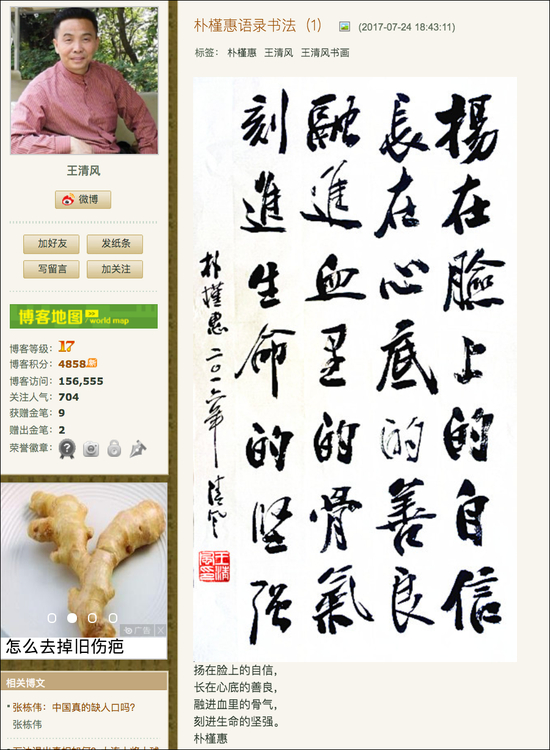 王清风
微博
加好友 发纸条
写留言 加关注
博客地图 world map
博客等级: 17
博客积分: 4858 新
博客访问: 156,555
关注人气: 704
获赠金笔: 9
赠出金笔: 2
荣誉徽章:
广告
怎么去掉旧伤疤
相关博文
张栋伟: 中国真的缺人口吗?
张栋伟
朴槿惠语录书法(1) (2017-07-24 18:43:11)
标签: 朴槿惠 王清风 王清风书画
揚在臉上的自信
長在心底的善良
融進血里的骨氣
刻進生命的坚强
朴槿惠 二〇一六年 清风
扬在脸上的自信,
长在心底的善良,
融进血里的骨气,
刻进生命的坚强。
朴槿惠